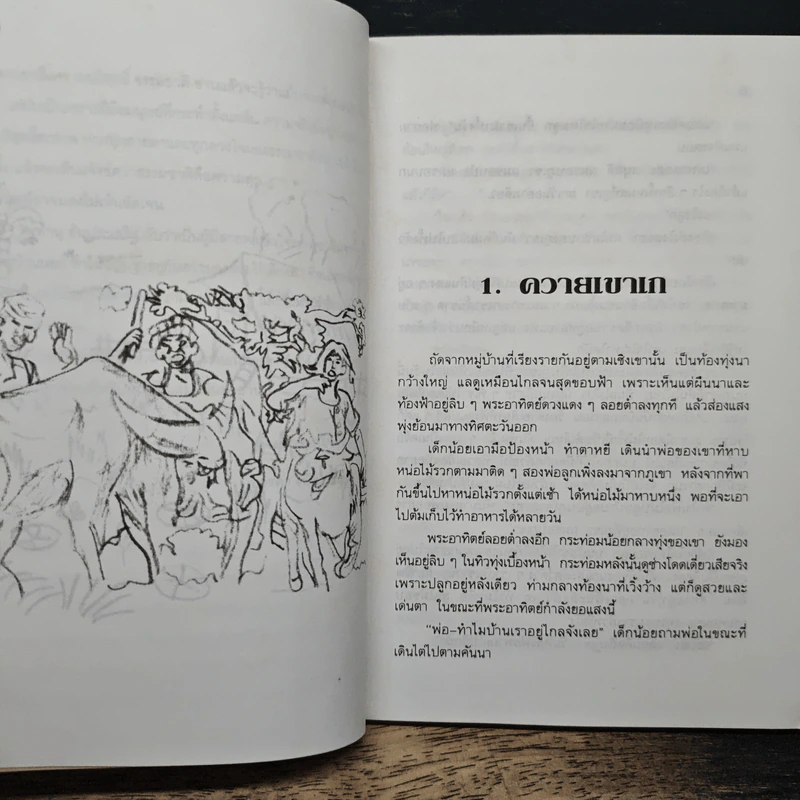 1. ควายเขาเก
ถัดจากหมู่บ้านที่เรียงรายกันอยู่ตามเชิงเขานั้น เป็นท้องทุ่งนา
กว้างใหญ่ แลดูเหมือนไกลจนสุดขอบฟ้า เพราะเห็นแต่ผืนนาและ
ท้องฟ้าอยู่ลิบ ๆ พระอาทิตย์ดวงแดง ๆ ลอยต่ำลงทุกที แล้วส่องแสง
พุ่งย้อนมาทางทิศตะวันออก
เด็กน้อยเอามือป้องหน้า ทำตาหยี เดินนำพ่อของเขาที่หาบ
หน่อไม้รวกตามมาติด ๆ สองพ่อลูกเพิ่งลงมาจากภูเขา หลังจากที่พา
กันขึ้นไปหาหน่อไม้รวกตั้งแต่เช้า ได้หน่อไม้มาหาบหนึ่ง พอที่จะเอา
ไปต้มเก็บไว้ทำอาหารได้หลายวัน
พระอาทิตย์ลอยต่ำลงอีก กระท่อมน้อยกลางทุ่งของเขา ยังมอง
เห็นอยู่ลิบ ๆ ในทิวทุ่งเบื้องหน้า กระท่อมหลังนั้นดูช่างโดดเดี่ยวเสียจริง
เพราะปลูกอยู่หลังเดียว ท่ามกลางท้องนาที่เวิ้งว้าง แต่ก็ดูสวยและ
เด่นตา ในขณะที่พระอาทิตย์กำลังยอแสงนี้
"พ่อ-ทำไมบ้านเราอยู่ไกลจังเลย" เด็กน้อยถามพ่อในขณะที่
เดินไต่ไปตามคันนา